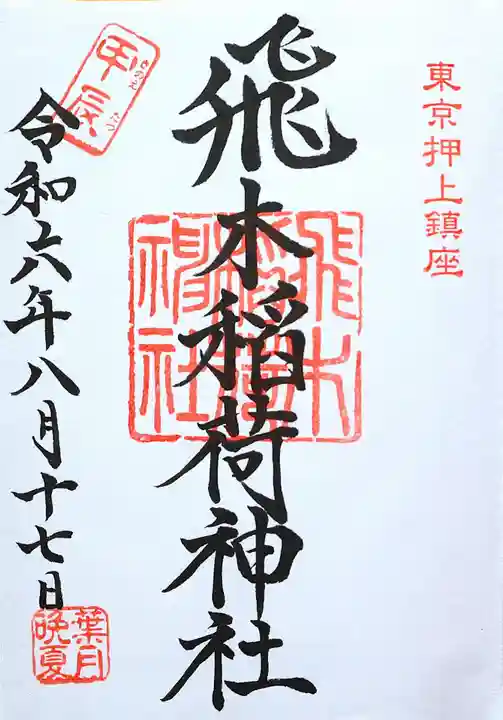 東京押上鎮座
飛木稲荷神社
飛木
稲荷
神社
甲辰
きのえ たつ
令和六年八月十七日
葉月
晩夏